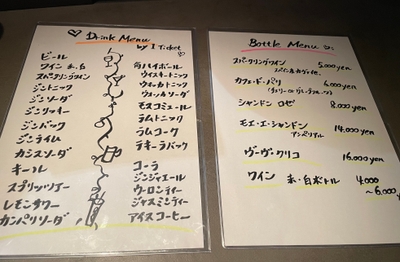 Drink Menu
by 1 Ticket
ビール
ワイン 赤.白
スパークリングワイン
ジントニック
ジンソーダ
ジンリッキー
ジンバック
ジンライム
カシスソーダ
キール
スプリッツァー
レモンサワー
カンパリソーダ
角ハイボール
ウイスキートニック
ウォッカトニック
ウォッカソーダ
モスコミュール
ラムトニック
ラムコーク
テキーラバック
コーラ
ジンジャエール
ウーロンティー
ジャスミンティー
アイスコーヒー
Bottle Menu
スパークリングワイン 5,000yen
カフェ・ド・パリ 6,000yen
シャンドン ロゼ 8,000yen
モエ・エ・シャンドン 14,000yen
アンペリアル
ヴーヴ・クリコ 16,000yen
ワイン 赤・白ボトル 4,000
～6,000yen